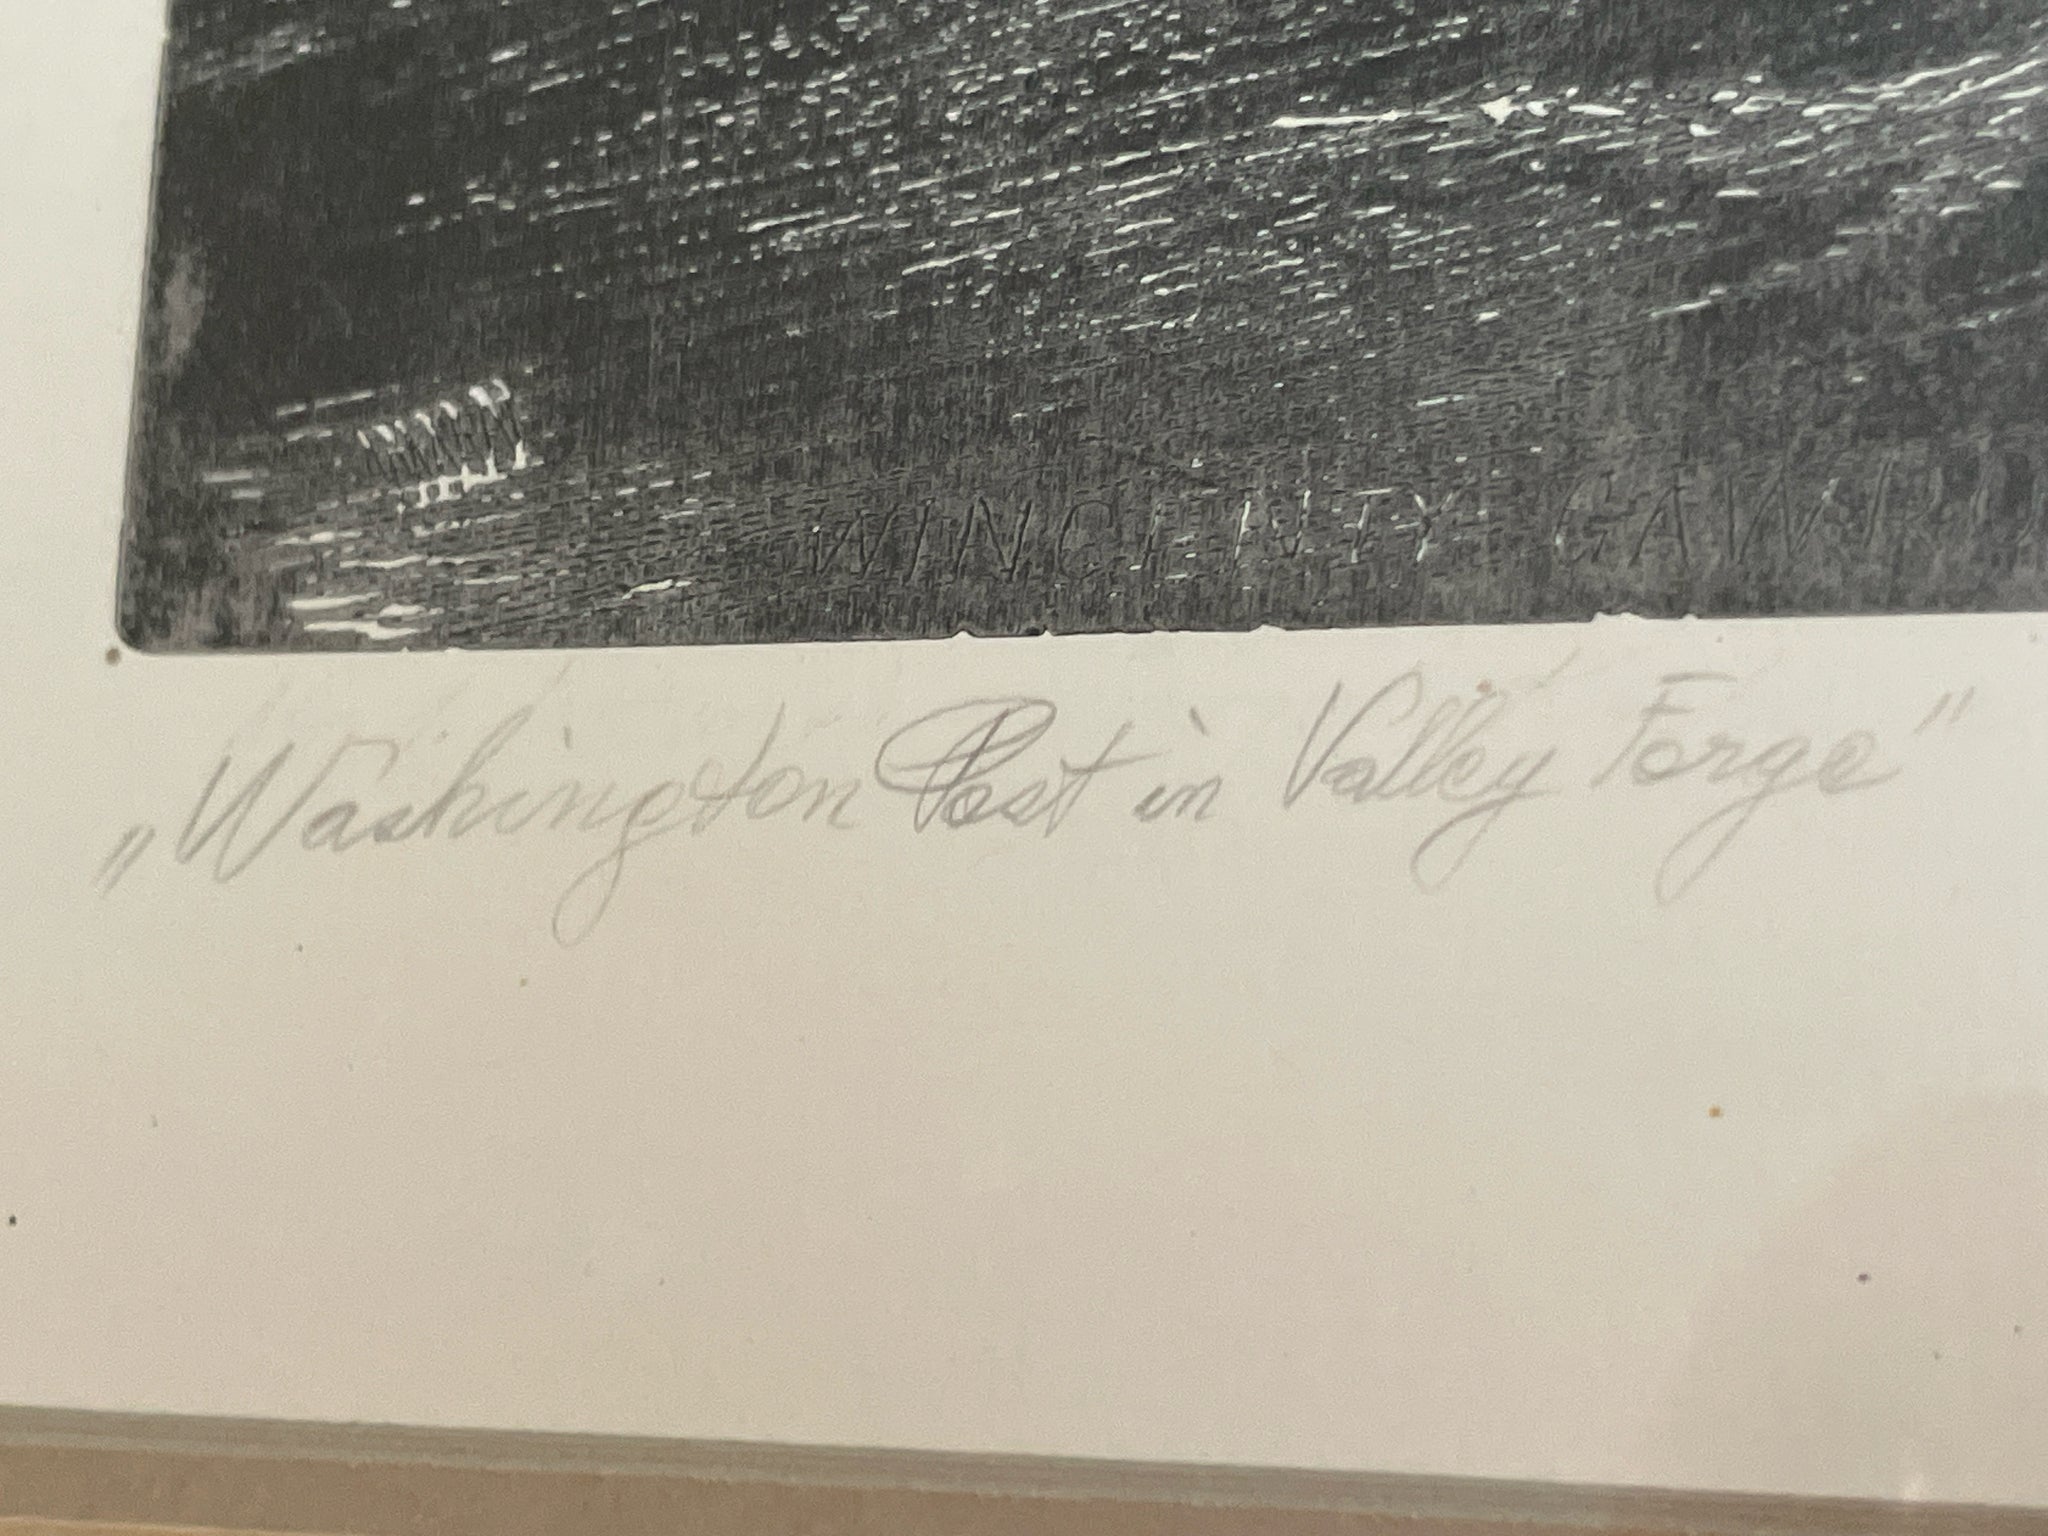 WINCENTY GAWRO
„Washington Post in Valley Forge"